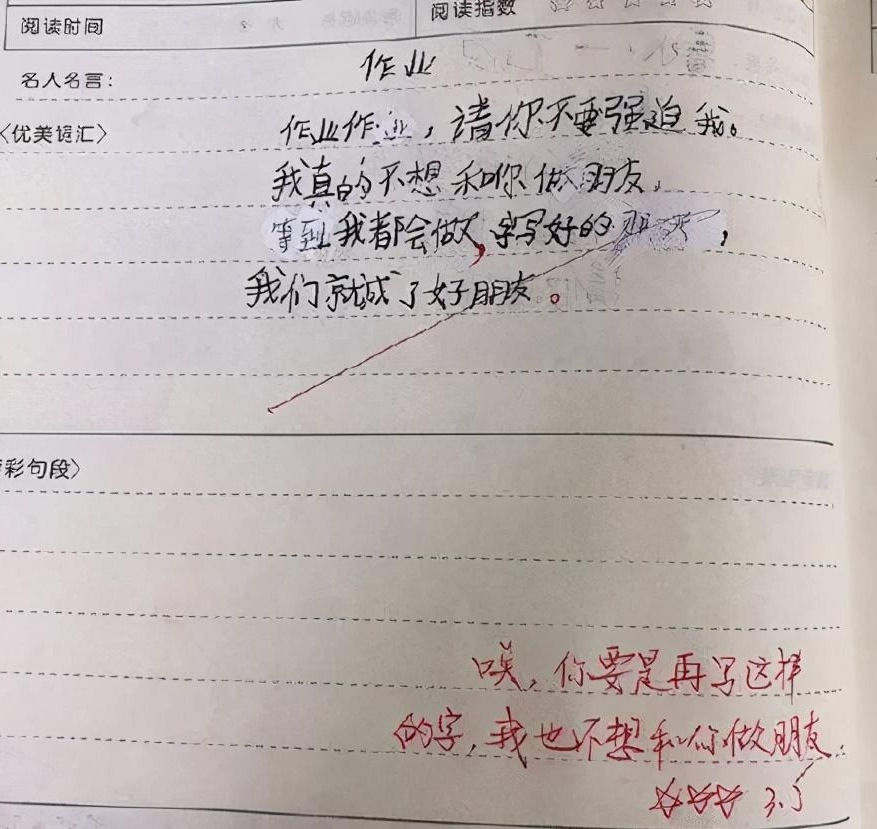 阅读时间
阅读指数 ☆ ☆ ☆ ☆ ☆
名人名言：
作业
〈优美词汇〉
作业作业，请你不要强迫我。
我真的不想和你做朋友，
等到我都会做，字写好的
，
我们就成了好朋友。
彩句段〉
唉，你要是再写这样
的字，我也不想和你做朋友。
☆☆☆ 3.5